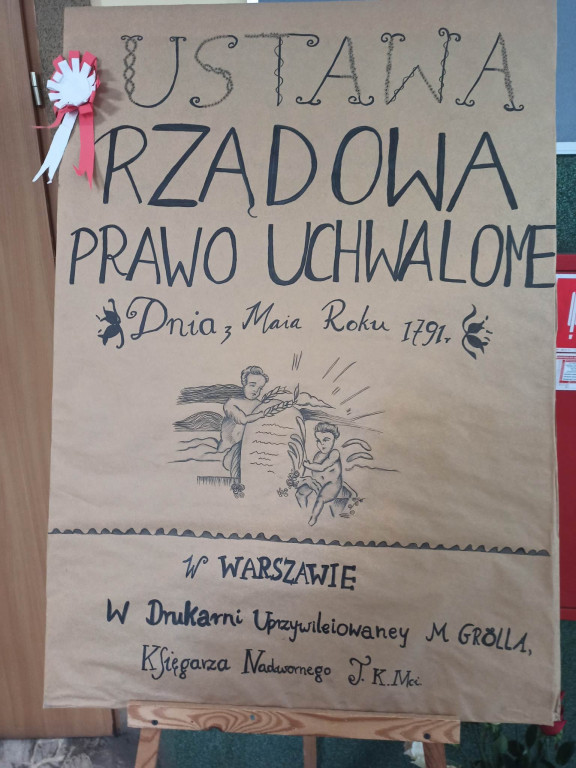 USTAWA
RZĄDOWA
PRAWO UCHWALONE
Dnia 3 Maia Roku 1791r
W WARSZAWIE
W Drukarni Uprzywileiowaney M GRÖLLA,
Księgarza Nadwornego J. K. Mci